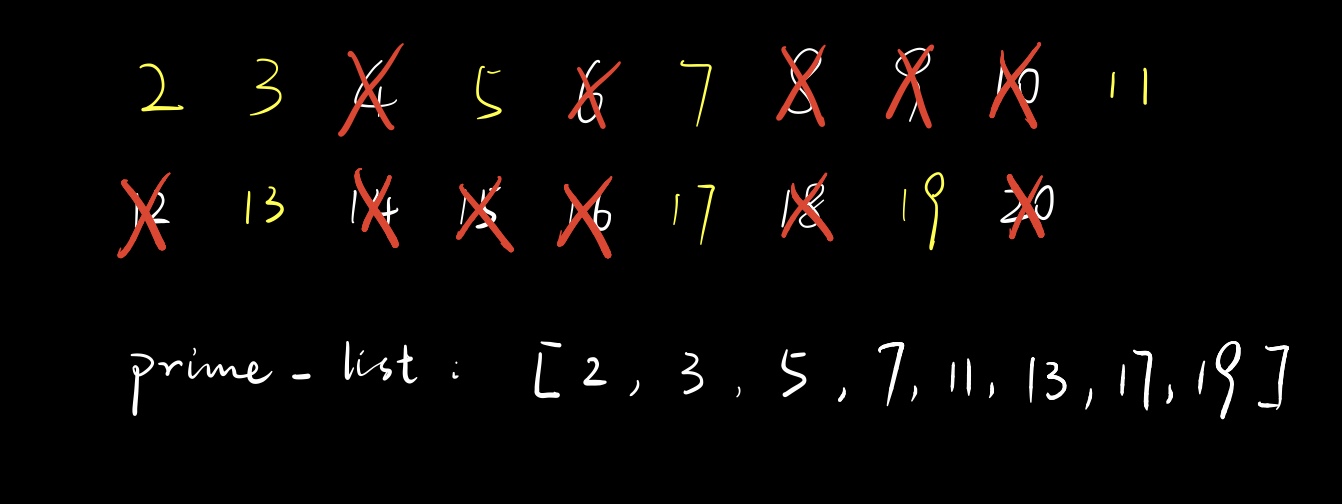 2 3 4 5 6 7 8 9 10 11
12 13 14 15 16 17 18 19 20
prime_list : [2, 3, 5, 7, 11, 13, 17, 19]